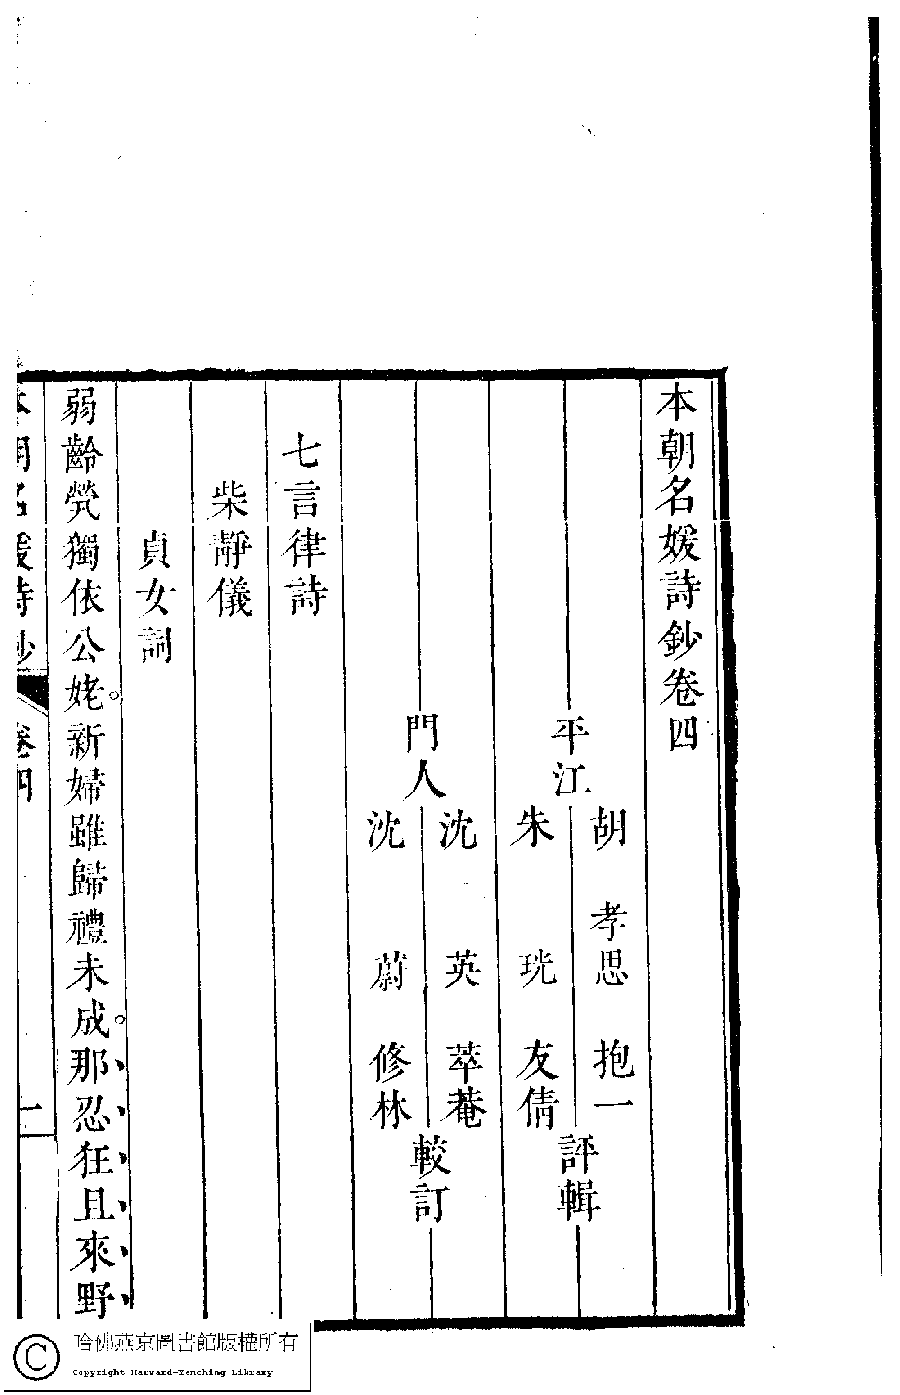 本朝名媛詩鈔卷四
平江
胡 孝思 抱一
朱 珖 友倩
評輯
門人
沈 英 萃菴
沈 蔚 修林
較訂
七言律詩
柴靜儀
貞女詞
弱齡煢獨依公姥。新婦雖歸禮未成。那忍狂且來野
本朝名媛詩鈔 卷四 一
哈佛燕京圖書館版權所有
Copyright Harvard-Yenching Library